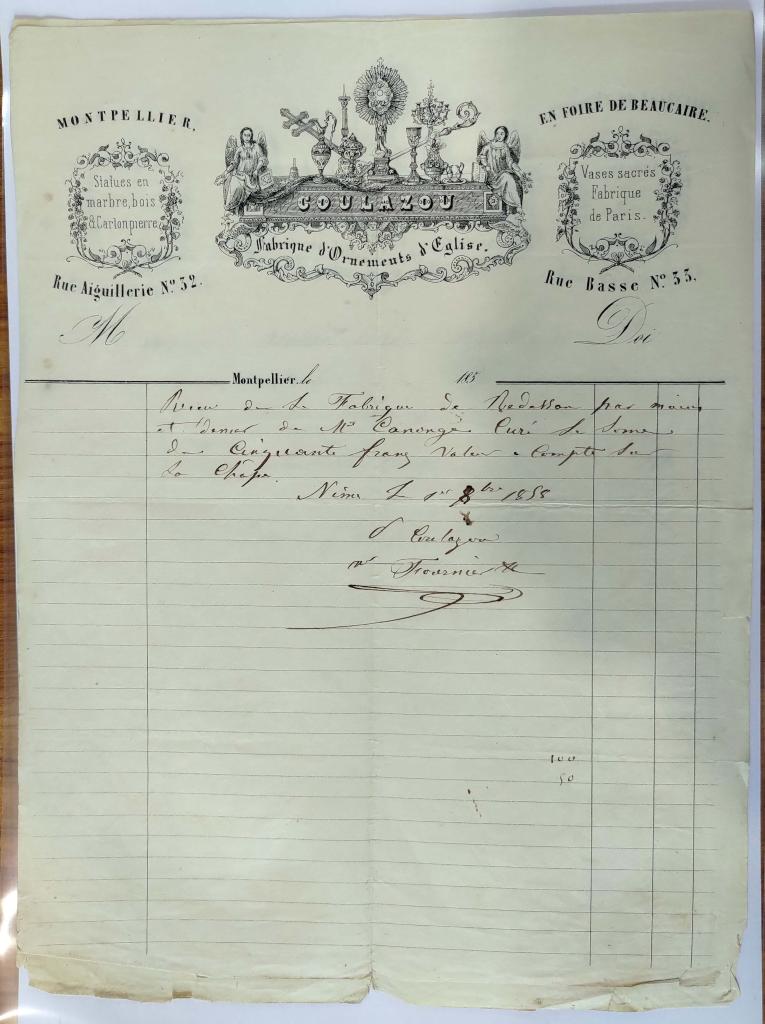 MONTPELLIER.
Statues en
marbre, bois
& Carton pierre.
Rue Aiguillerie Nº 32.
COULAZOU
Fabrique d'Ornements d'Eglise.
EN FOIRE DE BEAUCAIRE.
Vases sacrés
Fabrique
de Paris.
Rue Basse Nº 33.
M
Doi
Montpellier, le 185
Recu de la Fabrique de Redessan par mains
et denier de Mr Canonge Curé la Some
de Cinquante franç valeur a Compte sur
la Châpe.
Nîme le 1er 8bre 1858
Coulazou
Fournier
100
50